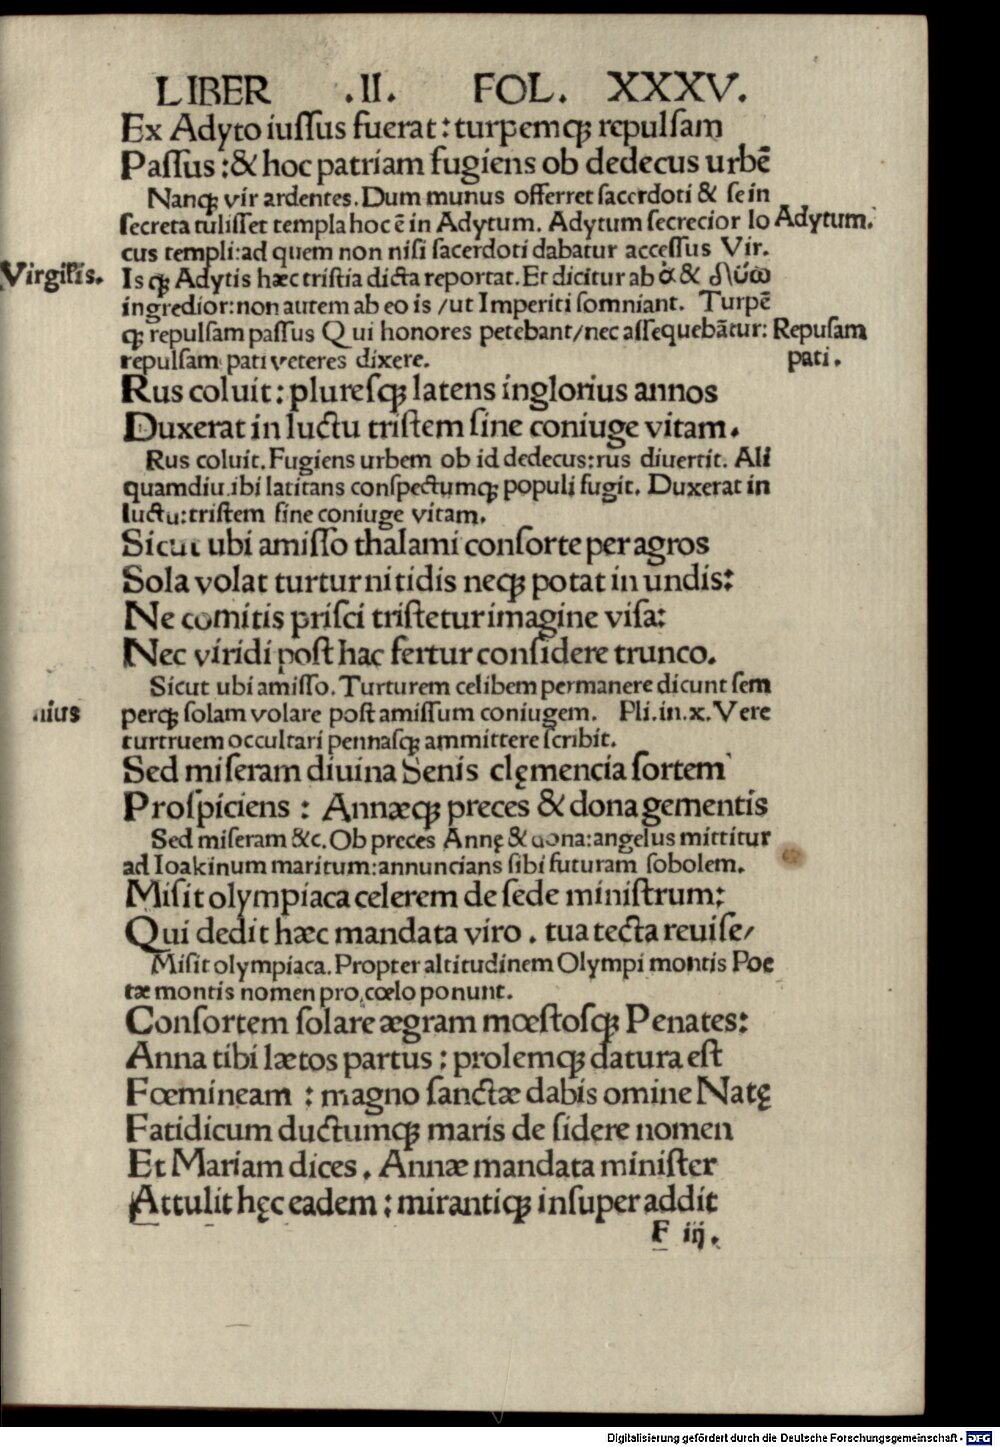 LIBER .II. FOL. XXXV.
Ex Adyto iuſſus fuerat: turpemqꝫ repulſam
Paſſus: & hoc patriam fugiens ob dedecus urbē
Nanqꝫ vir ardentes. Dum munus offerret ſacerdoti & ſe in
ſecreta tuliſſet templa hoc ē in Adytum. Adytum ſecrecior lo Adytum.
cus templi: ad quem non niſi ſacerdoti dabatur acceſſus Vir.
Virgilis. Is qꝫ Adytis hæc triſtia dicta reportat. Et dicitur ab &
ingredior: non autem ab eo is / ut Imperiti ſomniant. Turpē
qꝫ repulſam paſſus Qui honores petebant / nec aſſequebātur: Repuſam
repulſam pati veteres dixere. pati.
Rus coluit: pluresqꝫ latens inglorius annos
Duxerat in luctu triſtem ſine coniuge vitam.
Rus coluit. Fugiens urbem ob id dedecus: rus divertit. Ali
quamdiu ibi latitans conſpectumqꝫ populi fugit. Duxerat in
luctu: triſtem ſine coniuge vitam.
Sicut ubi amiſſo thalami conſorte per agros
Sola volat turtur nitidis neqꝫ potat in undis:
Ne comitis priſci triſtetur imagine viſa:
Nec viridi poſt hac fertur conſidere trunco.
Sicut ubi amiſſo. Turturem celibem permanere dicunt ſem
nius perqꝫ ſolam volare poſt amiſſum coniugem. Pli. in. x. Vere
turtruem occultari pennaſqꝫ ammittere ſcribit.
Sed miſeram diuina Senis clęmencia ſortem
Proſpiciens: Annæqꝫ preces & dona gementis
Sed miſeram &c. Ob preces Annę & dona: angelus mittitur
ad Ioakinum maritum: annuncians ſibi futuram ſobolem.
Miſit olympiaca celerem de ſede miniſtrum:
Qui dedit hæc mandata viro. tua tecta reuiſe/
Miſit olympiaca. Propter altitudinem Olympi montis Poe
tæ montis nomen pro cœlo ponunt.
Conſortem ſolare ægram mœſtoſqꝫ Penates:
Anna tibi lætos partus: prolemqꝫ datura eſt
Fœmineam: magno ſanctæ dabis omine Natę
Fatidicum ductumqꝫ maris de ſidere nomen
Et Mariam dices. Annæ mandata miniſter
Attulit hęc eadem: mirantiqꝫ inſuper addit
F iij.
Digitalisierung gefördert durch die Deutsche Forschungsgemeinschaft - DFG